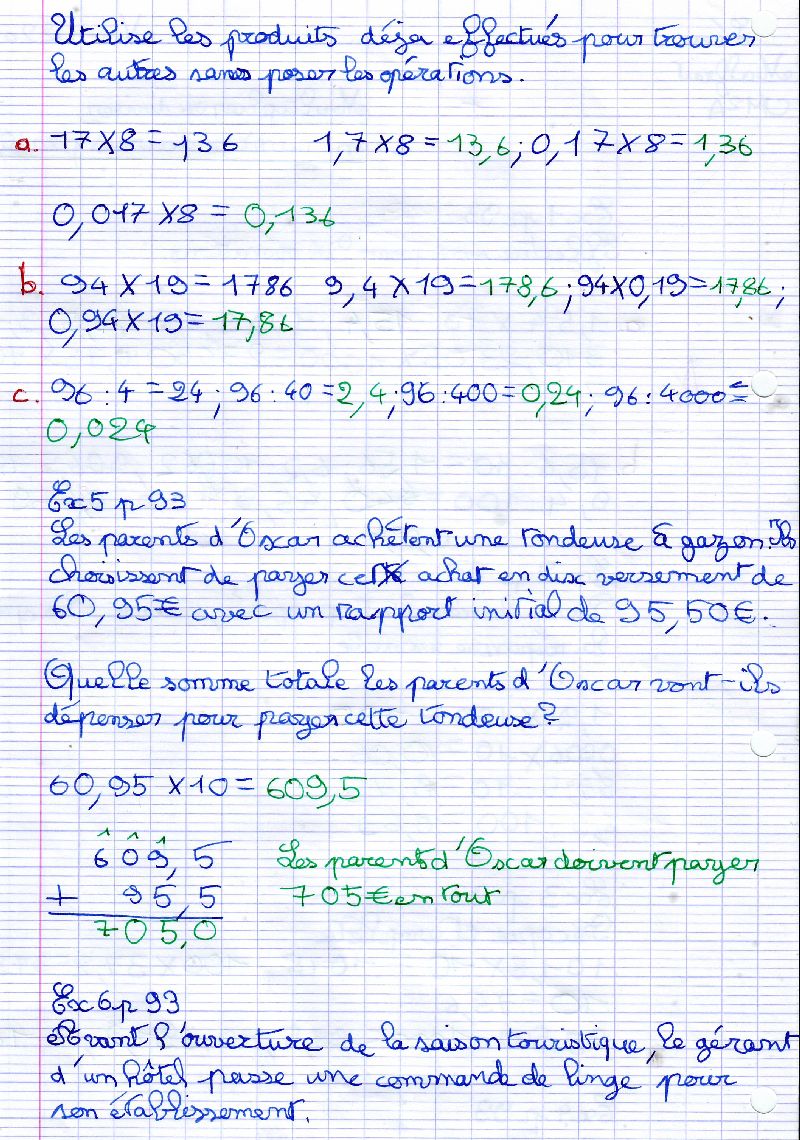 Utilise les produits déja effectués pour trouver
les autres sans poser les opérations.
a. 17x8 = 136 1,7x8 = 13,6; 0,17x8 = 1,36
0,017x8 = 0,136
b. 94x19 = 1786 9,4x19 = 178,6; 94x0,19 = 17,86;
0,94x19 = 17,86
c. 96 : 4 = 24; 96 : 40 = 2,4; 96 : 400 = 0,24; 96 : 4000 =
0,024
Ex 5 p 93
Les parents d'Oscar achètent une tondeuse à gazon. Ils
choisissent de payer cet achat en dix versement de
60,95€ avec un rapport initial de 95,50€.
Quelle somme totale les parents d'Oscar vont-ils
dépenser pour payer cette tondeuse?
60,95 x10 = 609,5
1 1 1
609,5 Les parents d'Oscar doivent payer
+ 95,5 705€ en tout
705,0
Ex 6 p 93
Avant l'ouverture de la saison touristique, le gérant
d'un hôtel passe une commande de linge pour
son établissement.